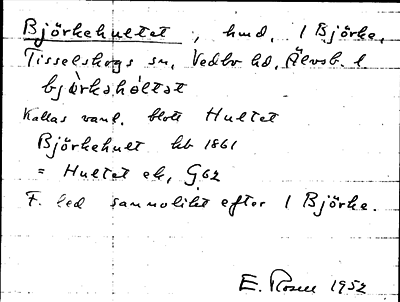 Björkehultet, hmd, 1 Björke,
Tisselskogs sn, Vedbo hd, Älvsb. l.
bjò̀rkəhóltət
Kallas vanl. blott Hultet
Björkehult hb 1861
= Hultet ek, G62
F. led sannolikt efter 1 Björke.
E. Rosell 1952